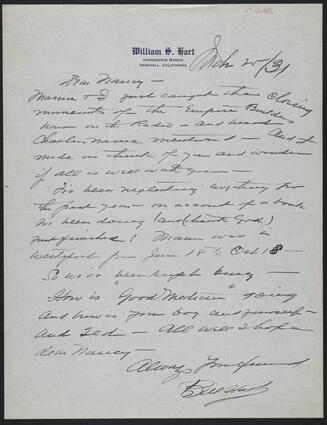 William S. Hart
Horseshoe Ranch
Newhall, California
Mch 25/31
Dear Nancy —
& I just caught the closing
moments of the Empire Builders
hour on the Radio — And heard
Charles name mentioned — And it
made us think of you and wonder
if all is well with you —
I've been neglecting everything for
the past year — on account of a book
I've been doing (and (thank God)
just finished! was in
Westport from June 18 to Oct 18 —
So we've been kept busy —
How is "Good Medicine" going
and how is your boy and yourself —
And Ted — All well I hope
dear Nancy —
Always Your friend
Bill Hart